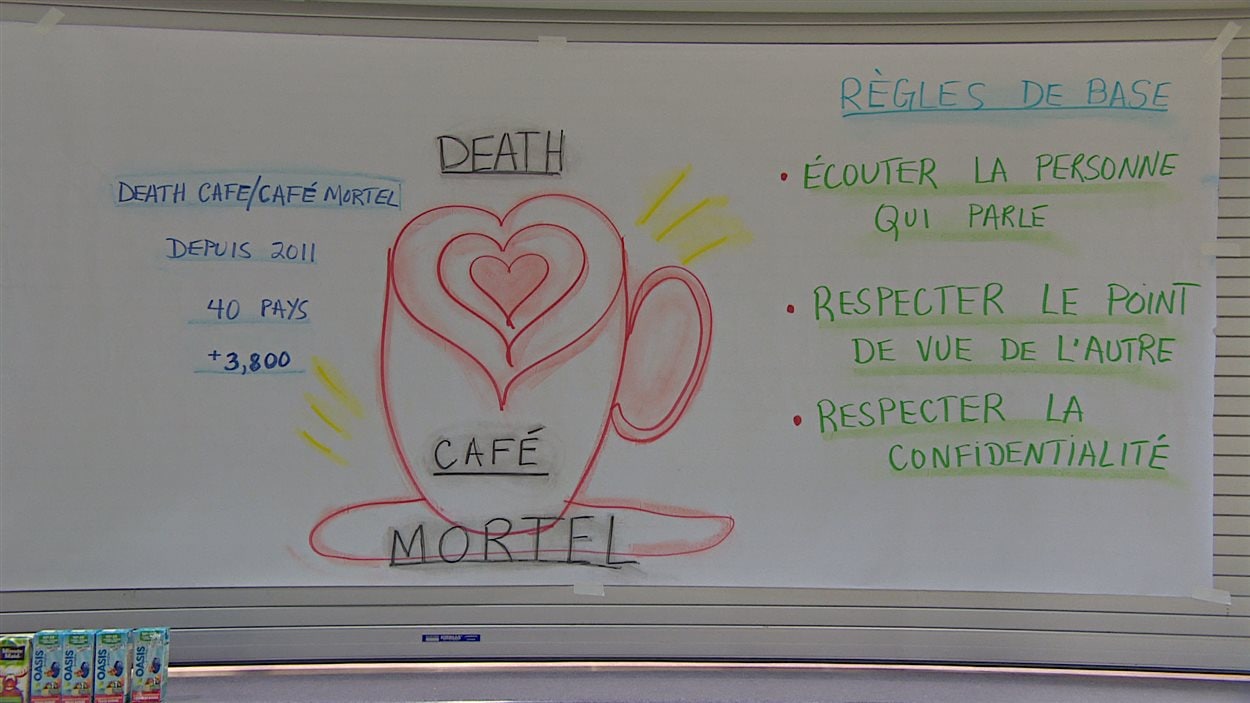 DEATH CAFE/CAFÉ MORTEL
DEPUIS 2011
40 PAYS
+3,800
DEATH
CAFÉ
MORTEL
RÈGLES DE BASE
• ÉCOUTER LA PERSONNE
QUI PARLE
• RESPECTER LE POINT
DE VUE DE L'AUTRE
• RESPECTER LA
CONFIDENTIALITÉ
Minute
Maid
OASIS
OASIS
OASIS
OASIS